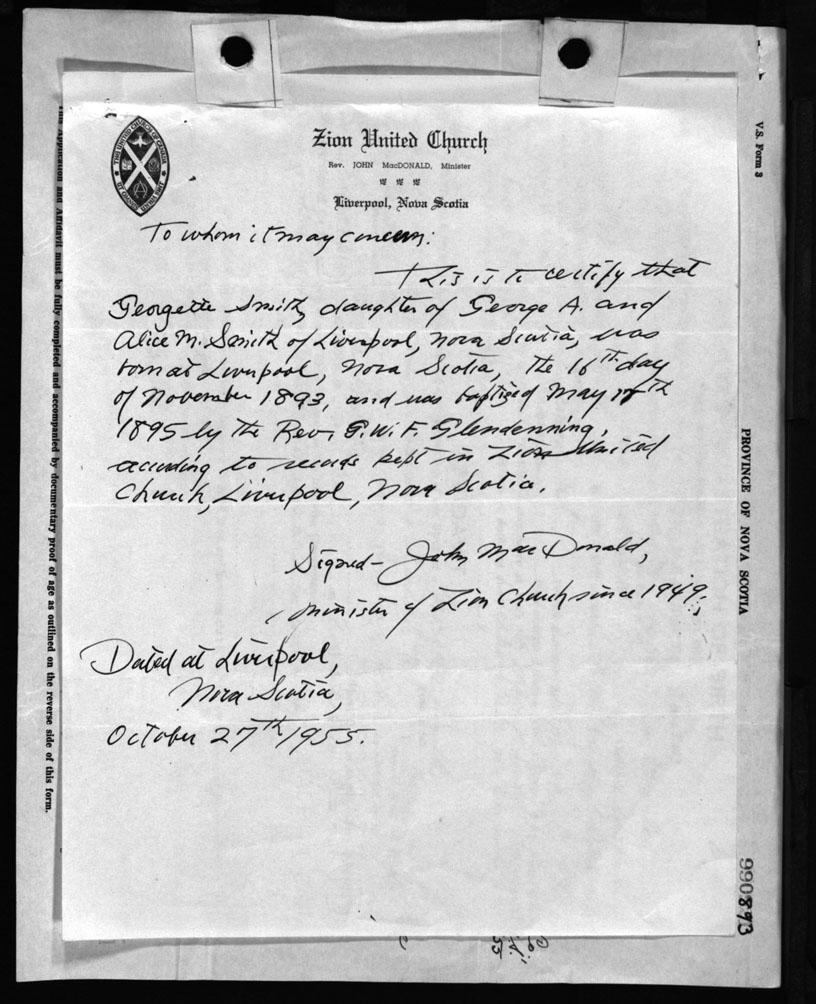 Zion United Church
Rev. JOHN MacDONALD, Minister
Liverpool, Nova Scotia
To whom it may concern:
This is to certify that
Georgette Smith, daughter of George A. and
Alice M. Smith of Liverpool, Nova Scotia, was
born at Liverpool, Nova Scotia, the 16th day
of November 1893, and was baptized May
1895 by the Rev. G.W.F. Glendenning,
according to records kept in Zion United
Church, Liverpool, Nova Scotia.
Signed- John MacDonald,
minister of Zion Church since 1949.
Dated at Liverpool,
Nova Scotia,
October 27th 1955.
V.S. Form 3
PROVINCE OF NOVA SCOTIA
Application and Affidavit must be fully completed and accompanied by documentary proof of age as outlined on the reverse side of this form.